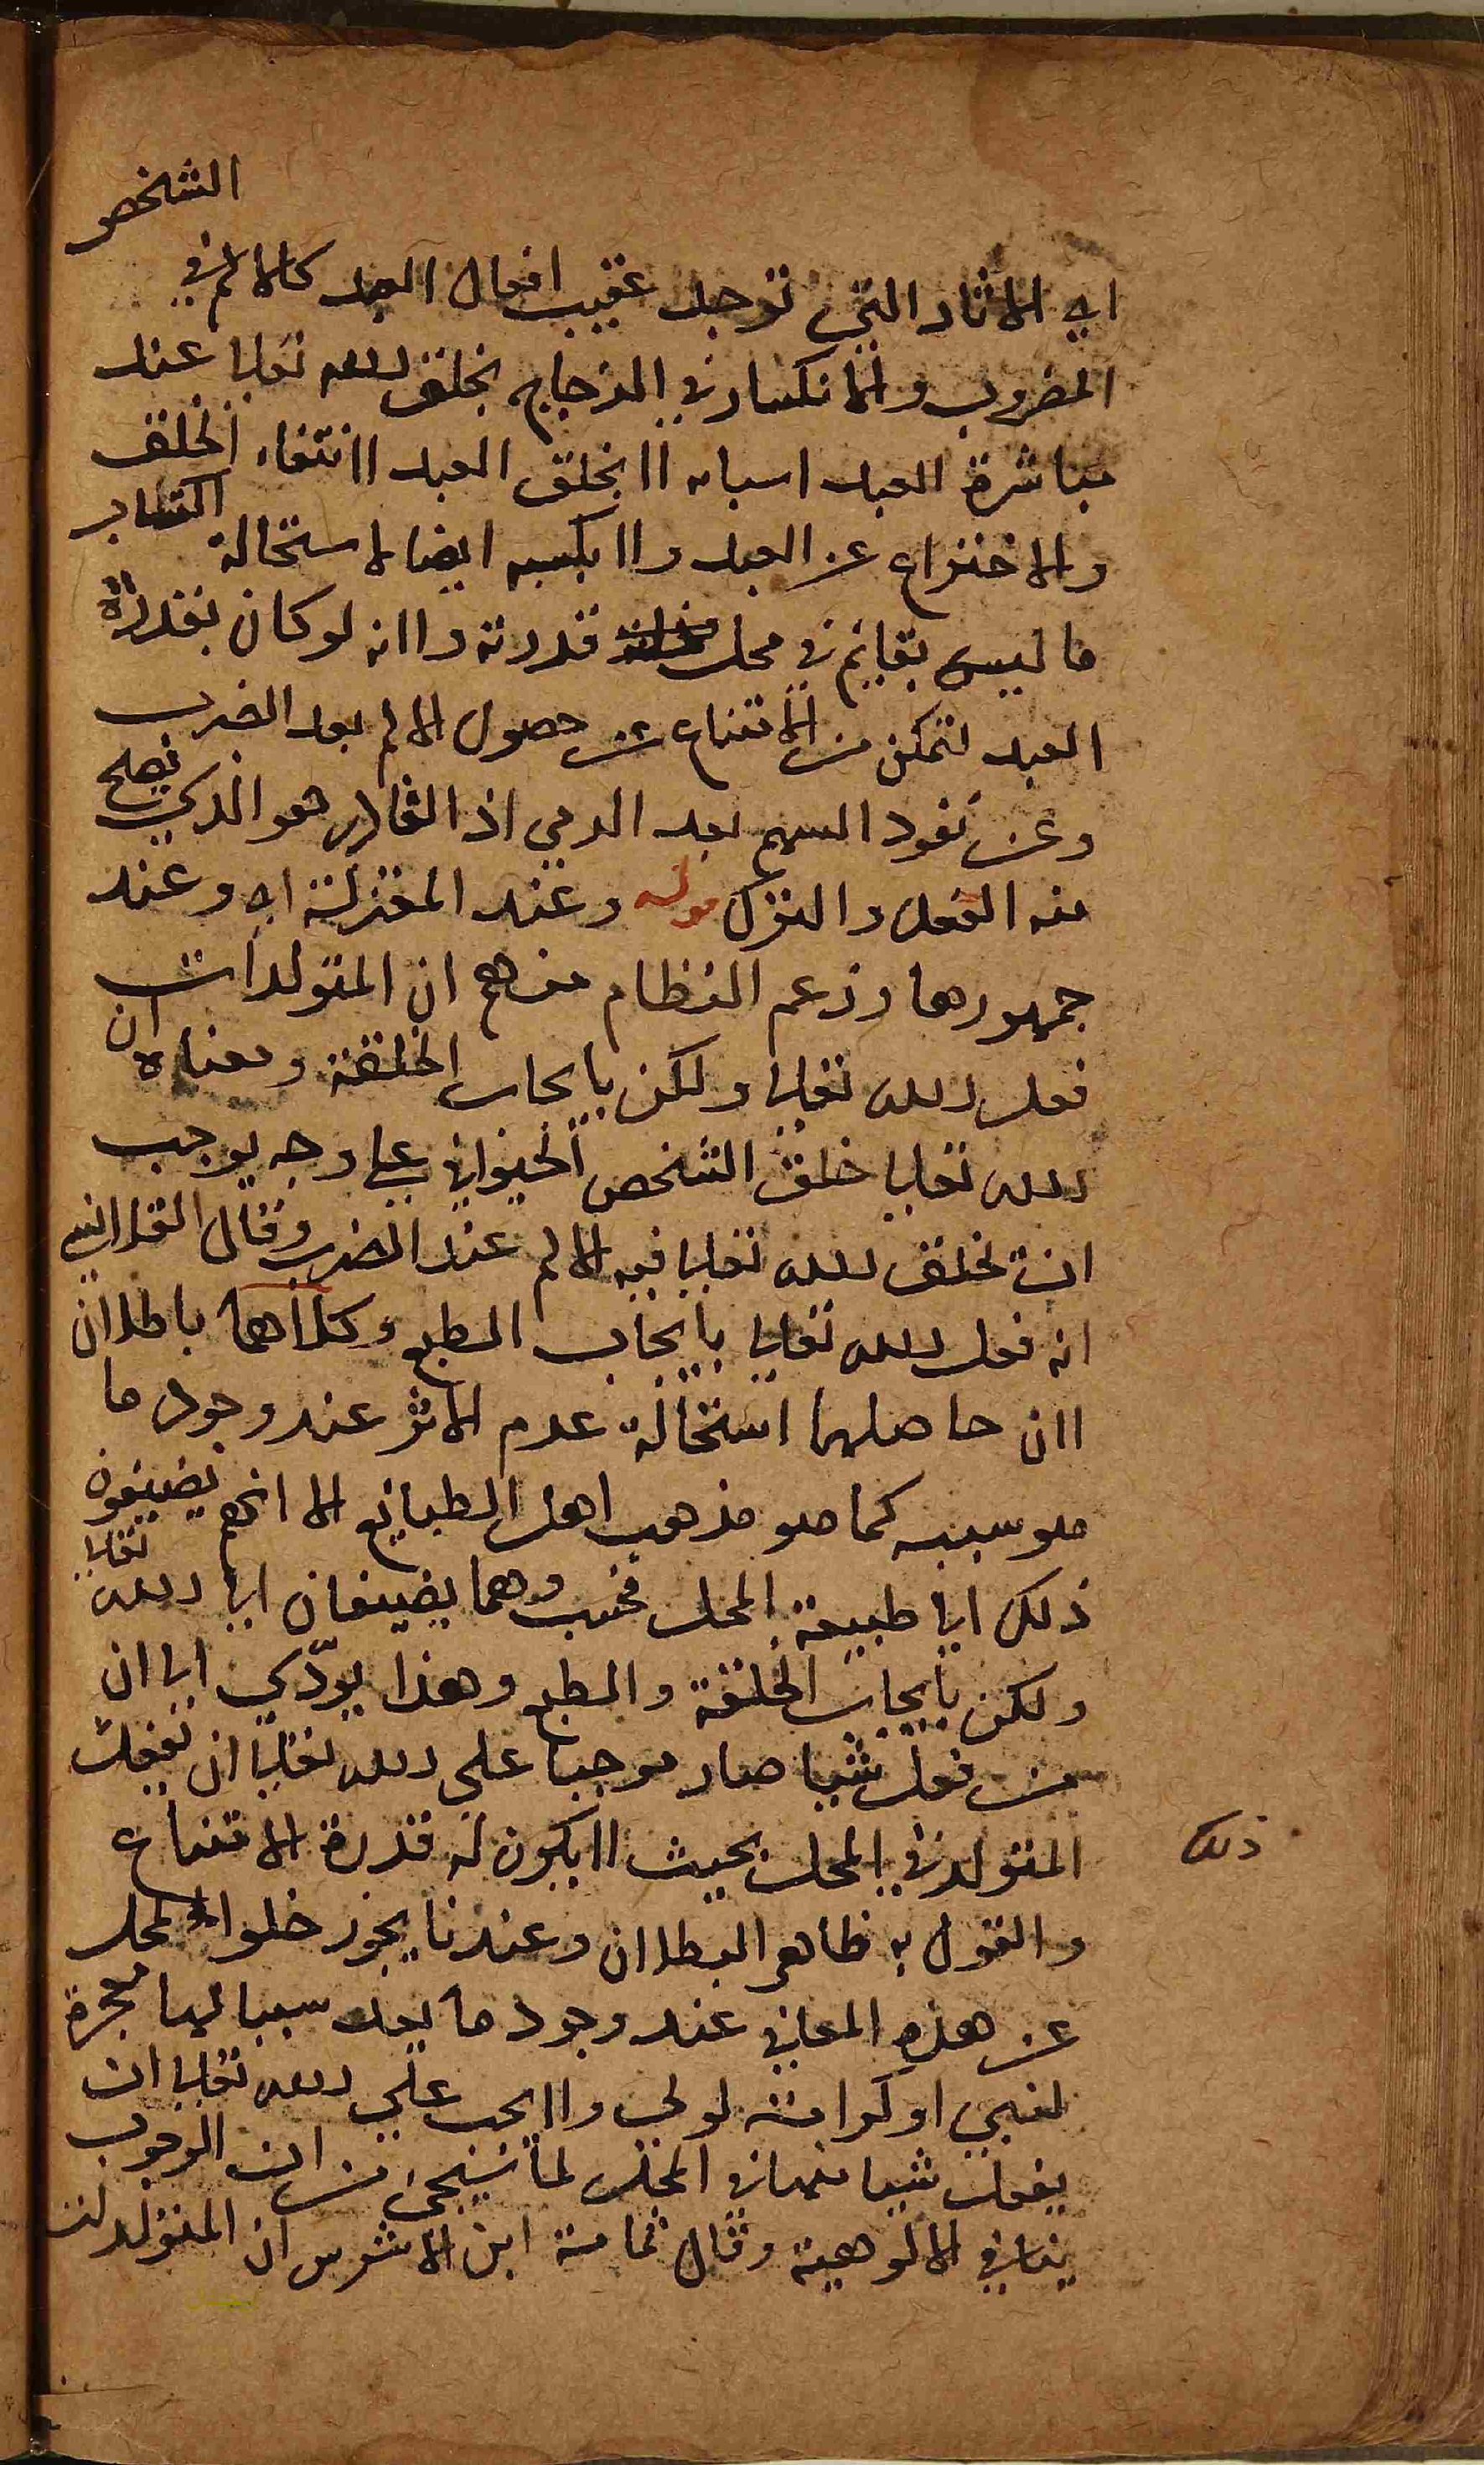 الشخص
اي الاثار التي توجد عقيب افعال العبد كالالم في
المضروب والانكسار في الزجاج بخلق الله تعالى عند
مباشرة العبد اسبابه لا بخلق العبد لانتفاء الخلق
والاختراع عن العبد ولا بكسبه ايضا لاستحالة اكتساب
ما ليس بقايم في محل قدرته ولانه لو كان بقدرة
العبد لتمكن من الامتناع عن حصول الالم بعد الضرب
وعن نفود السهم بعد الرمي اذ القادر هو الذي يصلح
منه الفعل والترك قوله وعند المعتزلة اي وعند
جمهورها وزعم النظام منهم ان المتولدات
فعل الله تعالى ولكن بايجاب الخلقة ومعناه ان
الله تعالى خلق الشخص الحيواني على وجه يوجب
ان يخلق الله تعالى فيه الالم عند الضرب وقال القلانسي
انه فعل الله تعالى بايجاب الطبع وكلاهما باطلان
لان حاصلهما استحالة عدم الاثر عند وجود ما
هو سببه كما هو مذهب اهل الطبايع الا انهم يضيفون
ذلك الى طبيعة المحل فحسب وهما يضيفان الى الله تعالى
ولكن بايجاب الخلقة والطبع وهذا يودّي الى ان
من فعل شيا صار موجبا على الله تعالى ان يفعل
المتولد في المحل بحيث لا يكون له قدرة الامتناع
ذلك
والقول به ظاهر البطلان وعندنا يجوز خلو المحل
عن هذه المعاني عند وجود ما يعد سببا لها معجزة
لنبي او كرامة لولي ولا يجب على الله تعالى ان
يفعل شيا منها في المحل لما سيجئ من ان الوجوب
ينافي الالوهية وقال ثمامة ابن الاشرس ان المتولدات